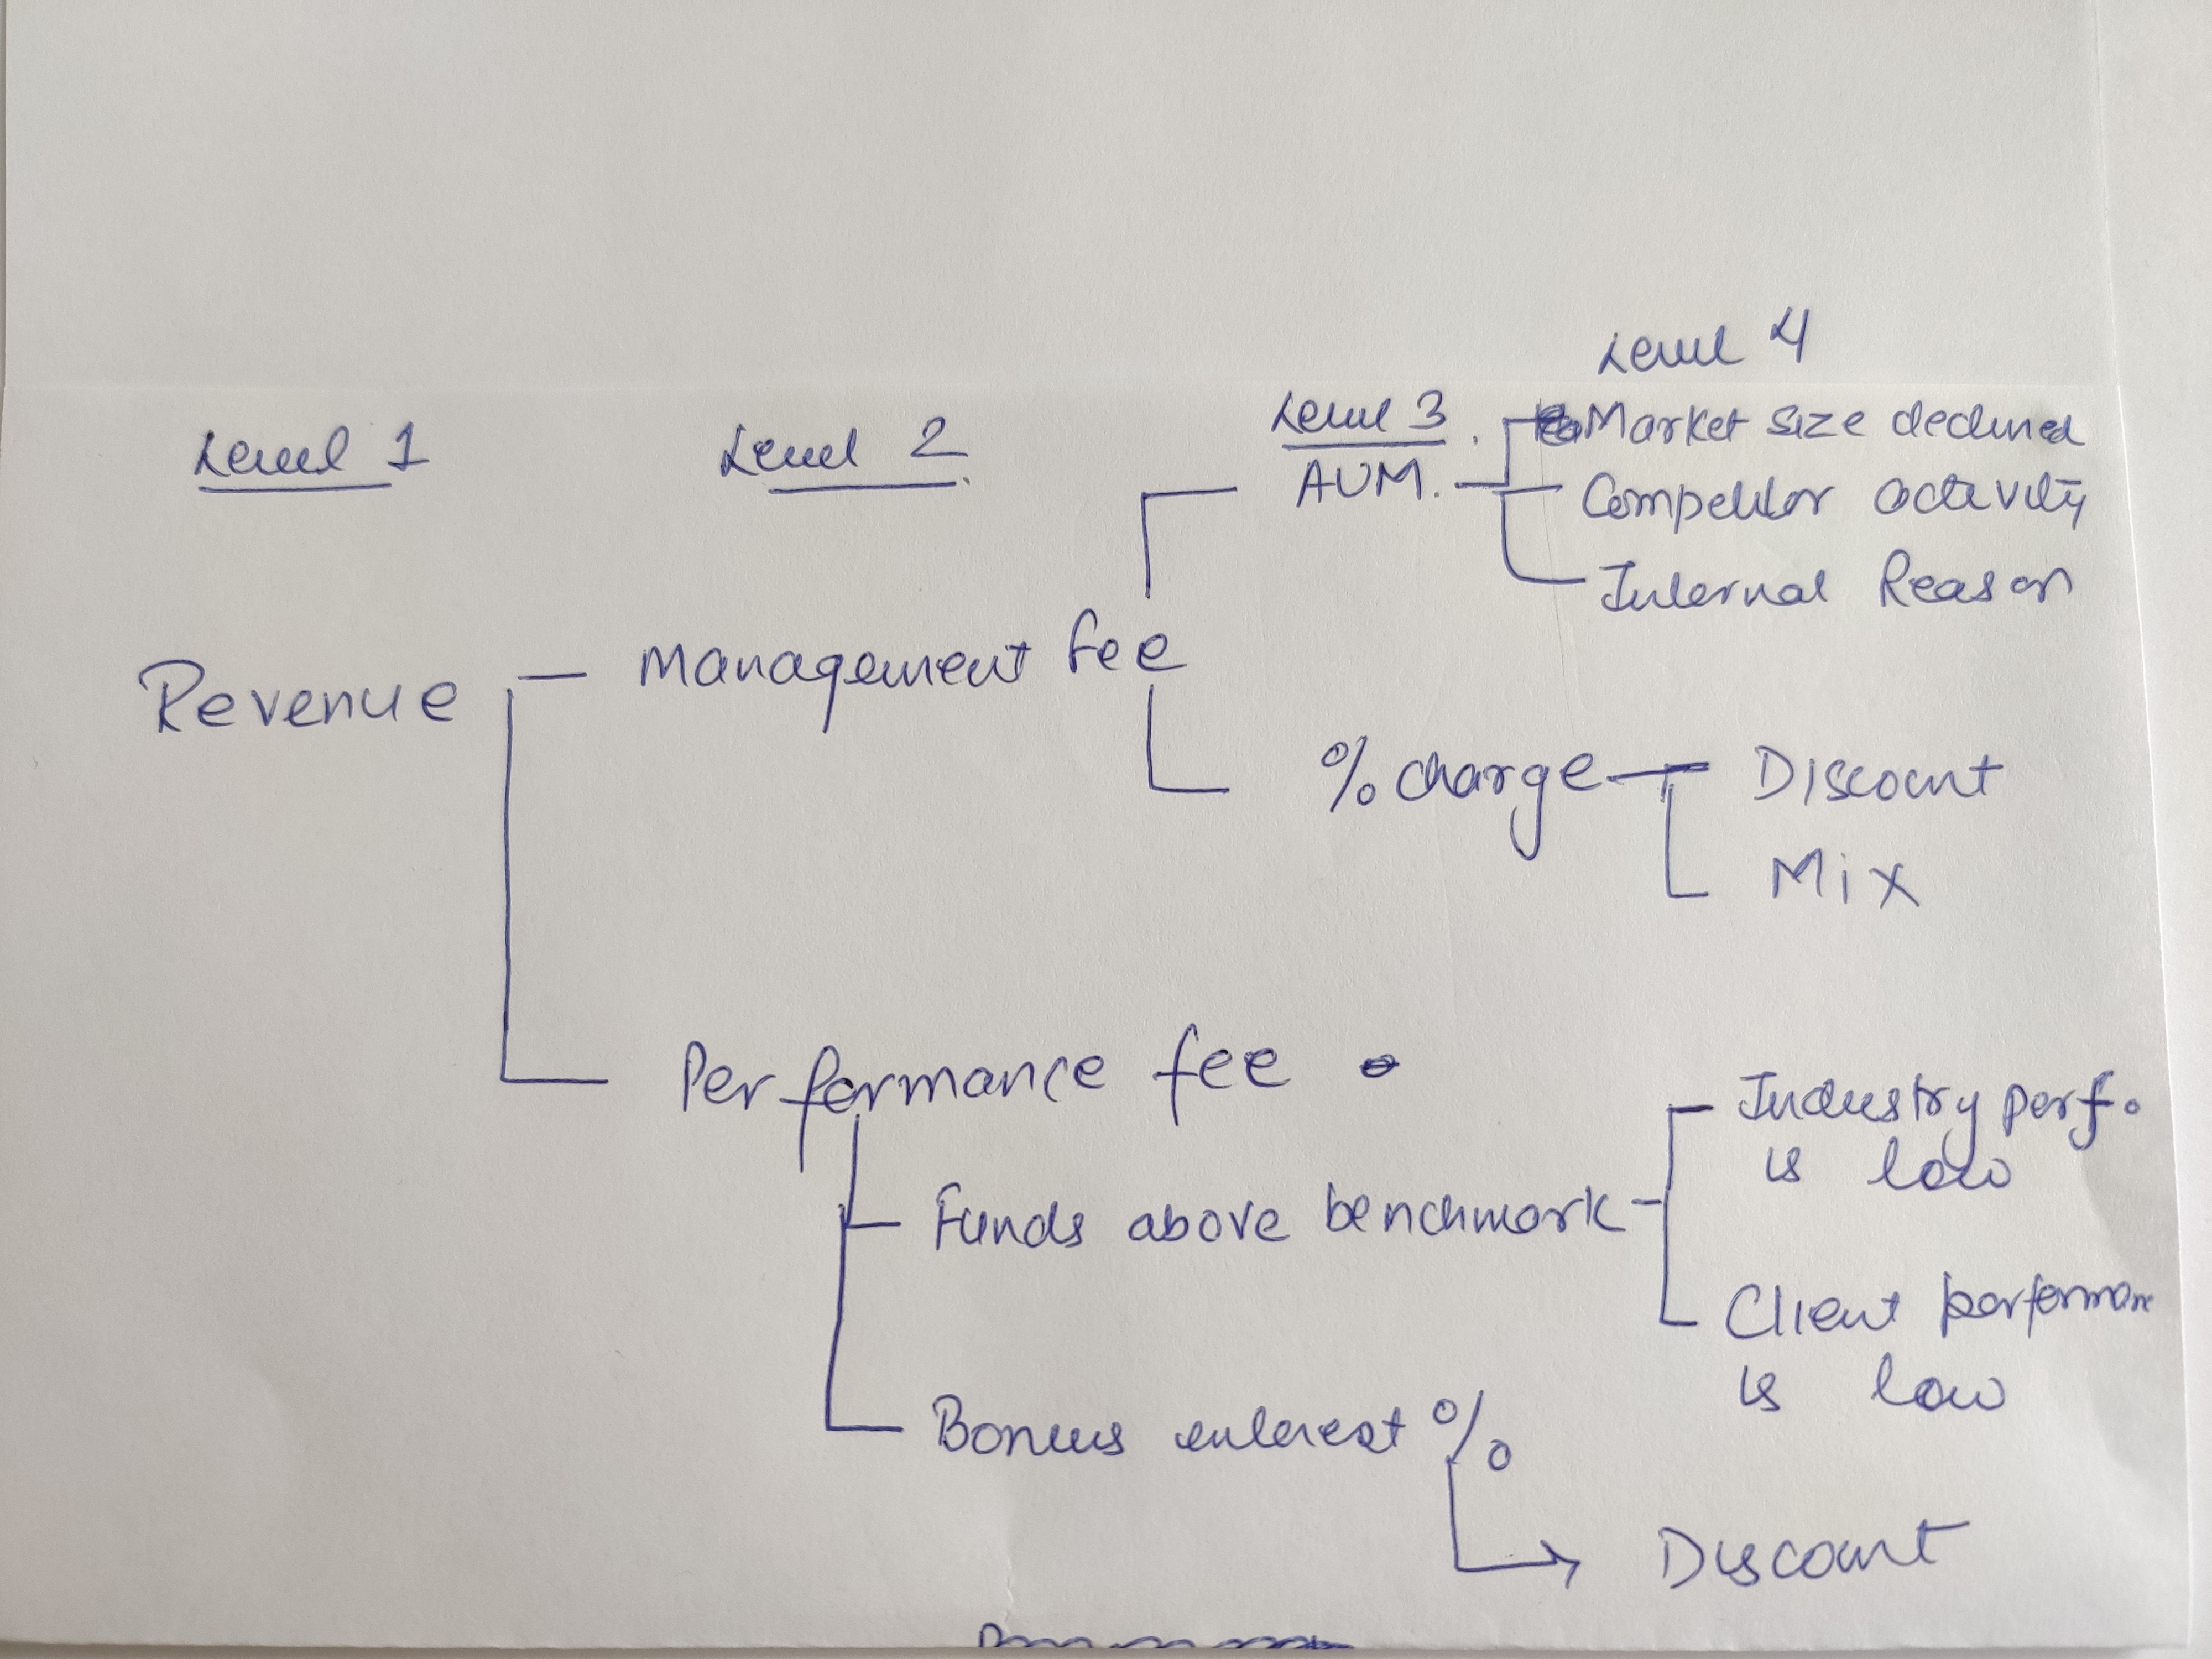 Level 4
Level 1 Level 2 Level 3
Market size declined
AUM.
Competitor activity
Internal Reason
Revenue Management fee
% charge Discount
Mix
Performance fee
Industry perf.
is low
Funds above benchmark
Client performance
is low
Bonus interest %
Discount